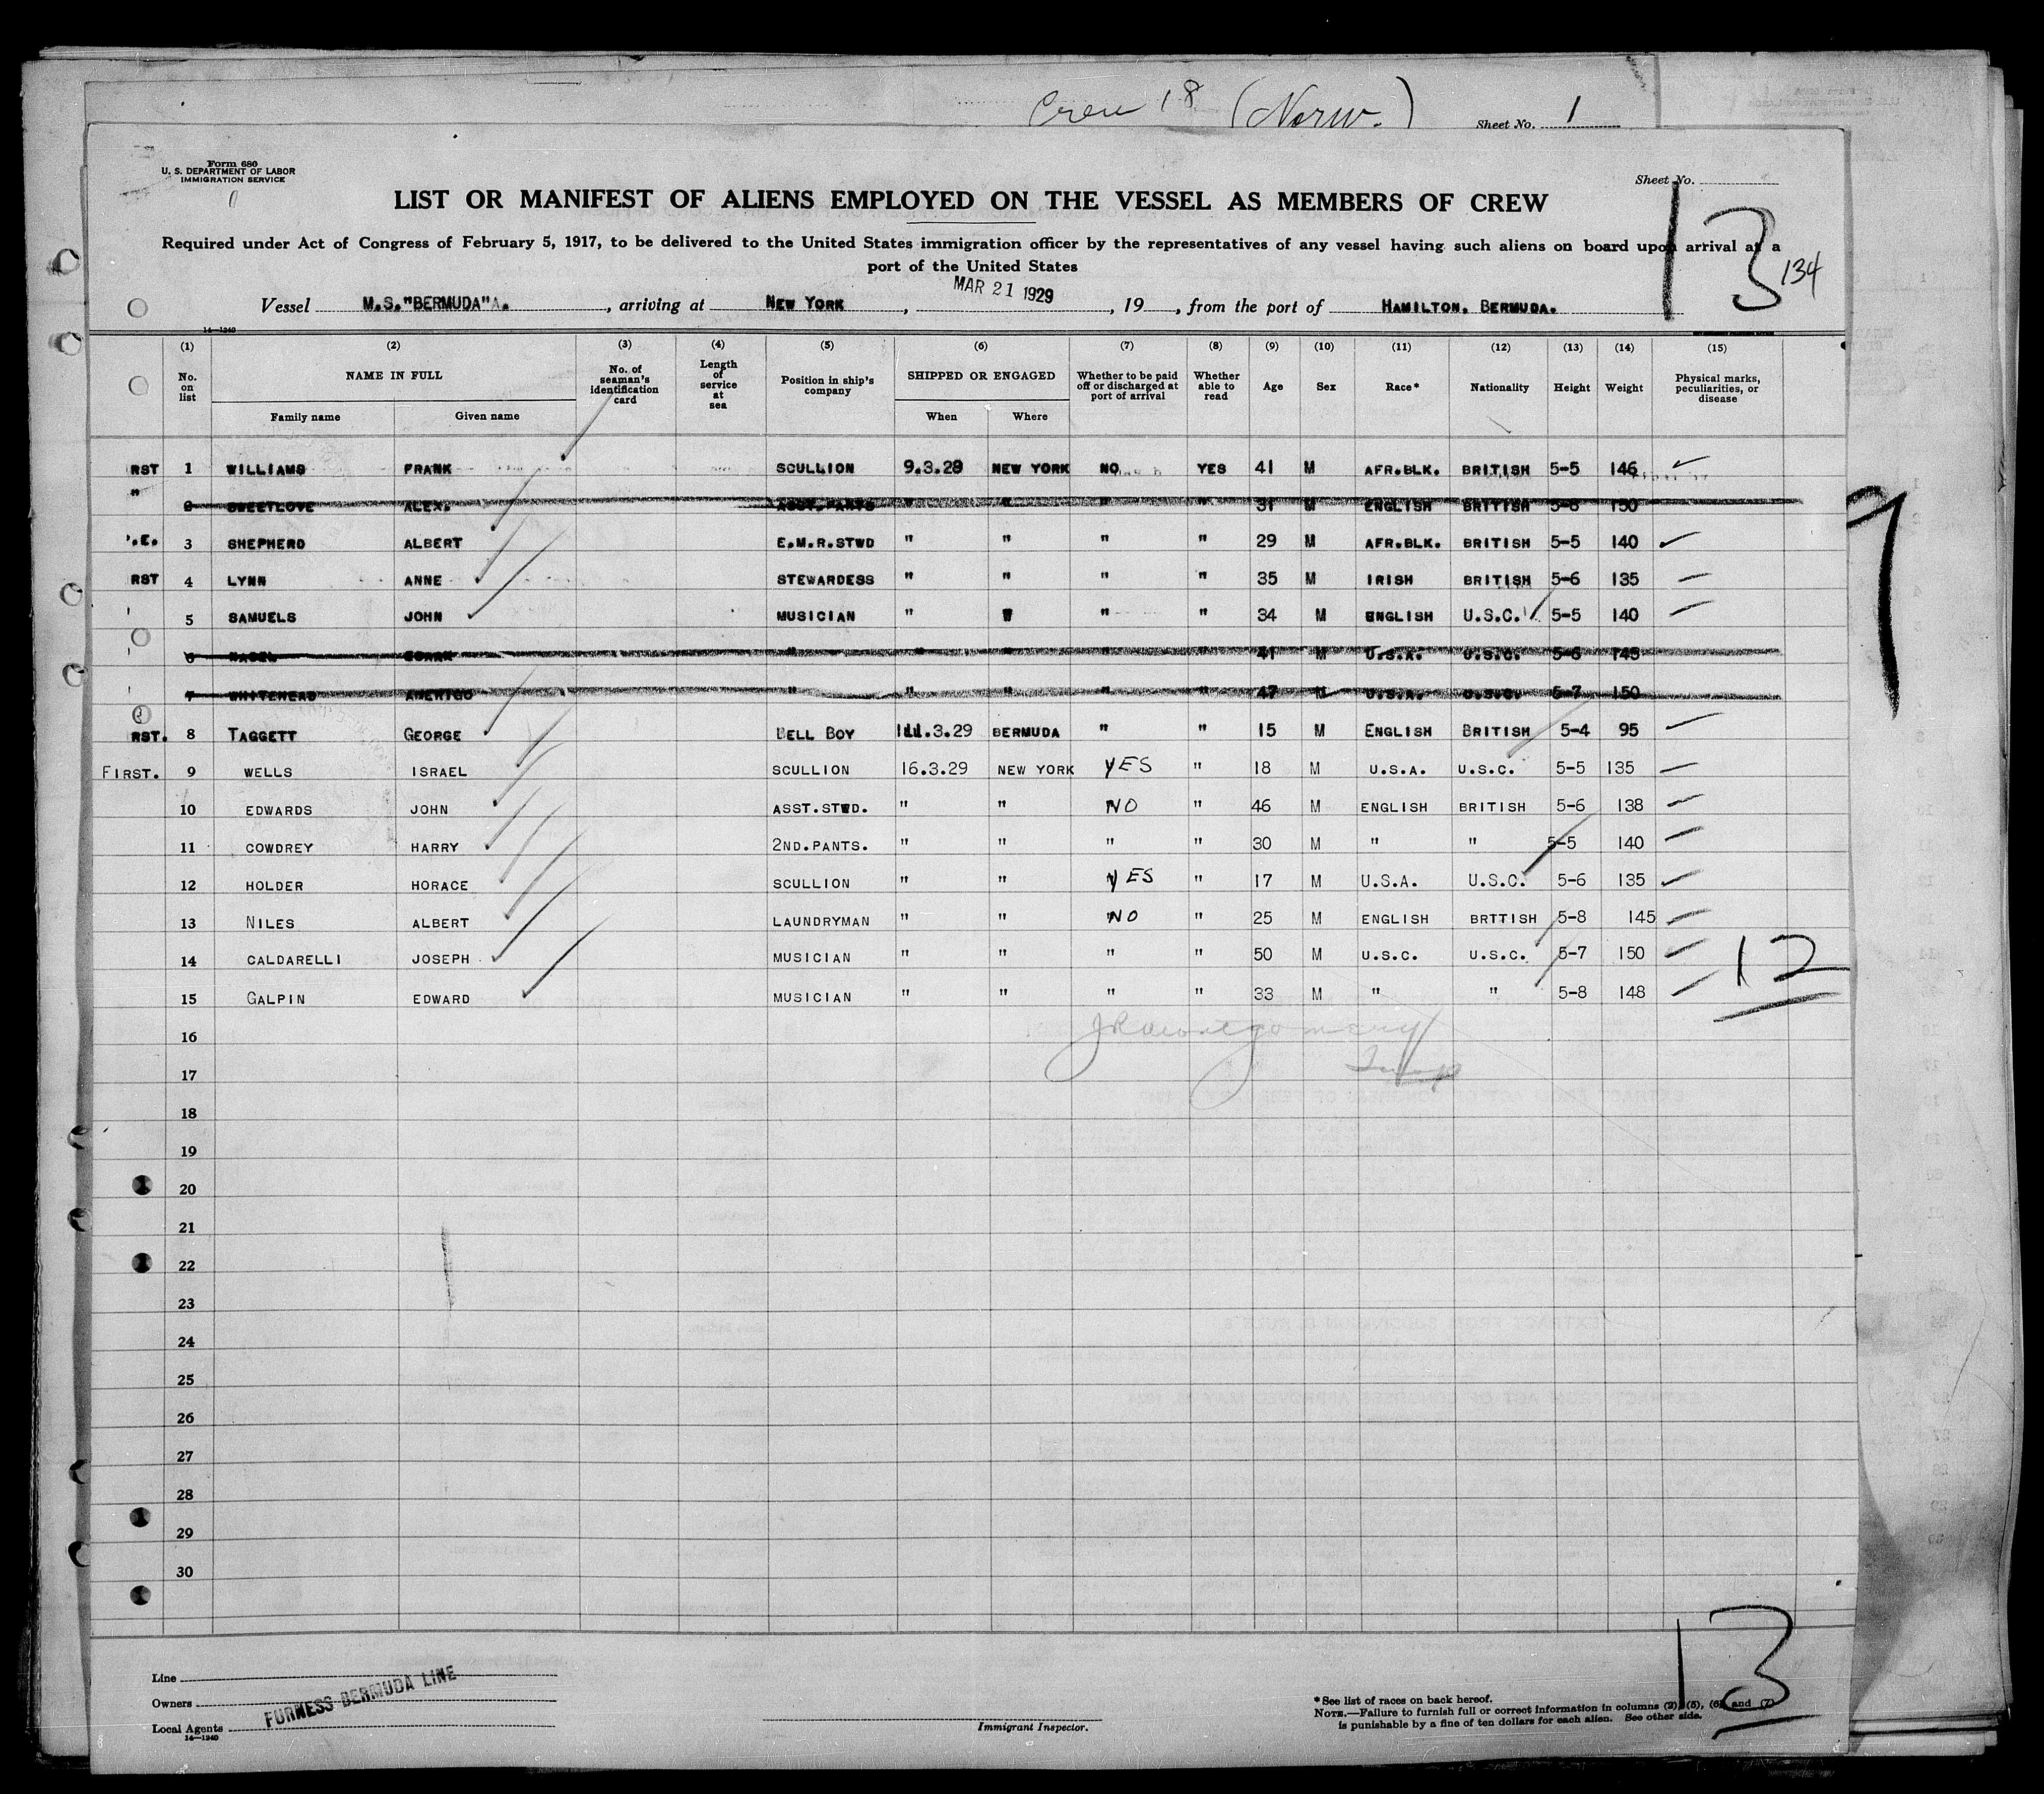 Crew 18 (Norw.) Sheet No. 1
Form 680
U. S. DEPARTMENT OF LABOR
IMMIGRATION SERVICE
Sheet No.
13
134
LIST OR MANIFEST OF ALIENS EMPLOYED ON THE VESSEL AS MEMBERS OF CREW
Required under Act of Congress of February 5, 1917, to be delivered to the United States immigration officer by the representatives of any vessel having such aliens on board upon arrival at a
port of the United States
Vessel M.S."BERMUDA"A. , arriving at NEW YORK , MAR 21 1929 , 19 , from the port of HAMILTON, BERMUDA.
14—1240
(1) (2) (3) (4) (5) (6) (7) (8) (9) (10) (11) (12) (13) (14) (15)
No. on list NAME IN FULL Family name Given name No. of seaman's identification card Length of service at sea Position in ship's company SHIPPED OR ENGAGED When Where Whether to be paid off or discharged at port of arrival Whether able to read Age Sex Race* Nationality Height Weight Physical marks, peculiarities, or disease
RST 1 WILLIAMS FRANK SCULLION 9.3.29 NEW YORK NO YES 41 M AFR.BLK. BRITISH 5-5 146
" 2 SWEETLOVE ALEX. ASST.PANTS " " " " 31 M ENGLISH BRITISH 5-6 150
.E. 3 SHEPHERD ALBERT E.M.R.STWD " " " " 29 M AFR.BLK. BRITISH 5-5 140
RST 4 LYNN ANNE STEWARDESS " " " " 35 M IRISH BRITISH 5-6 135
' 5 SAMUELS JOHN MUSICIAN " " " " 34 M ENGLISH U.S.C. 5-5 140
' 6 NAGEL " " " " " 41 M U.S.A. U.S.C. 5-6 145
' 7 WHITEHEAD AMERIGO " " " " " 47 M U.S.A. U.S.C. 5-7 150
RST. 8 TAGGETT GEORGE BELL BOY 111.3.29 BERMUDA " " 15 M ENGLISH BRITISH 5-4 95
FIRST. 9 WELLS ISRAEL SCULLION 16.3.29 NEW YORK YES " 18 M U.S.A. U.S.C. 5-5 135
10 EDWARDS JOHN ASST.STWD. " " NO " 46 M ENGLISH BRITISH 5-6 138
11 COWDREY HARRY 2ND.PANTS. " " " " 30 M " " 5-5 140
12 HOLDER HORACE SCULLION " " YES " 17 M U.S.A. U.S.C. 5-6 135
13 NILES ALBERT LAUNDRYMAN " " NO " 25 M ENGLISH BRTTISH 5-8 145
14 CALDARELLI JOSEPH MUSICIAN " " " " 50 M U.S.C. U.S.C. 5-7 150
15 GALPIN EDWARD MUSICIAN " " " " 33 M " " 5-8 148
12
16 JRMontgomery
17 Insp
18
19
20
21
22
23
24
25
26
27
28
29
30
13
Line
Owners
Local Agents
FURNESS BERMUDA LINE
14—1240
Immigrant Inspector.
*See list of races on back hereof.
NOTE.—Failure to furnish full or correct information in columns (2), (5), (6), and (7)
is punishable by a fine of ten dollars for each alien. See other side.